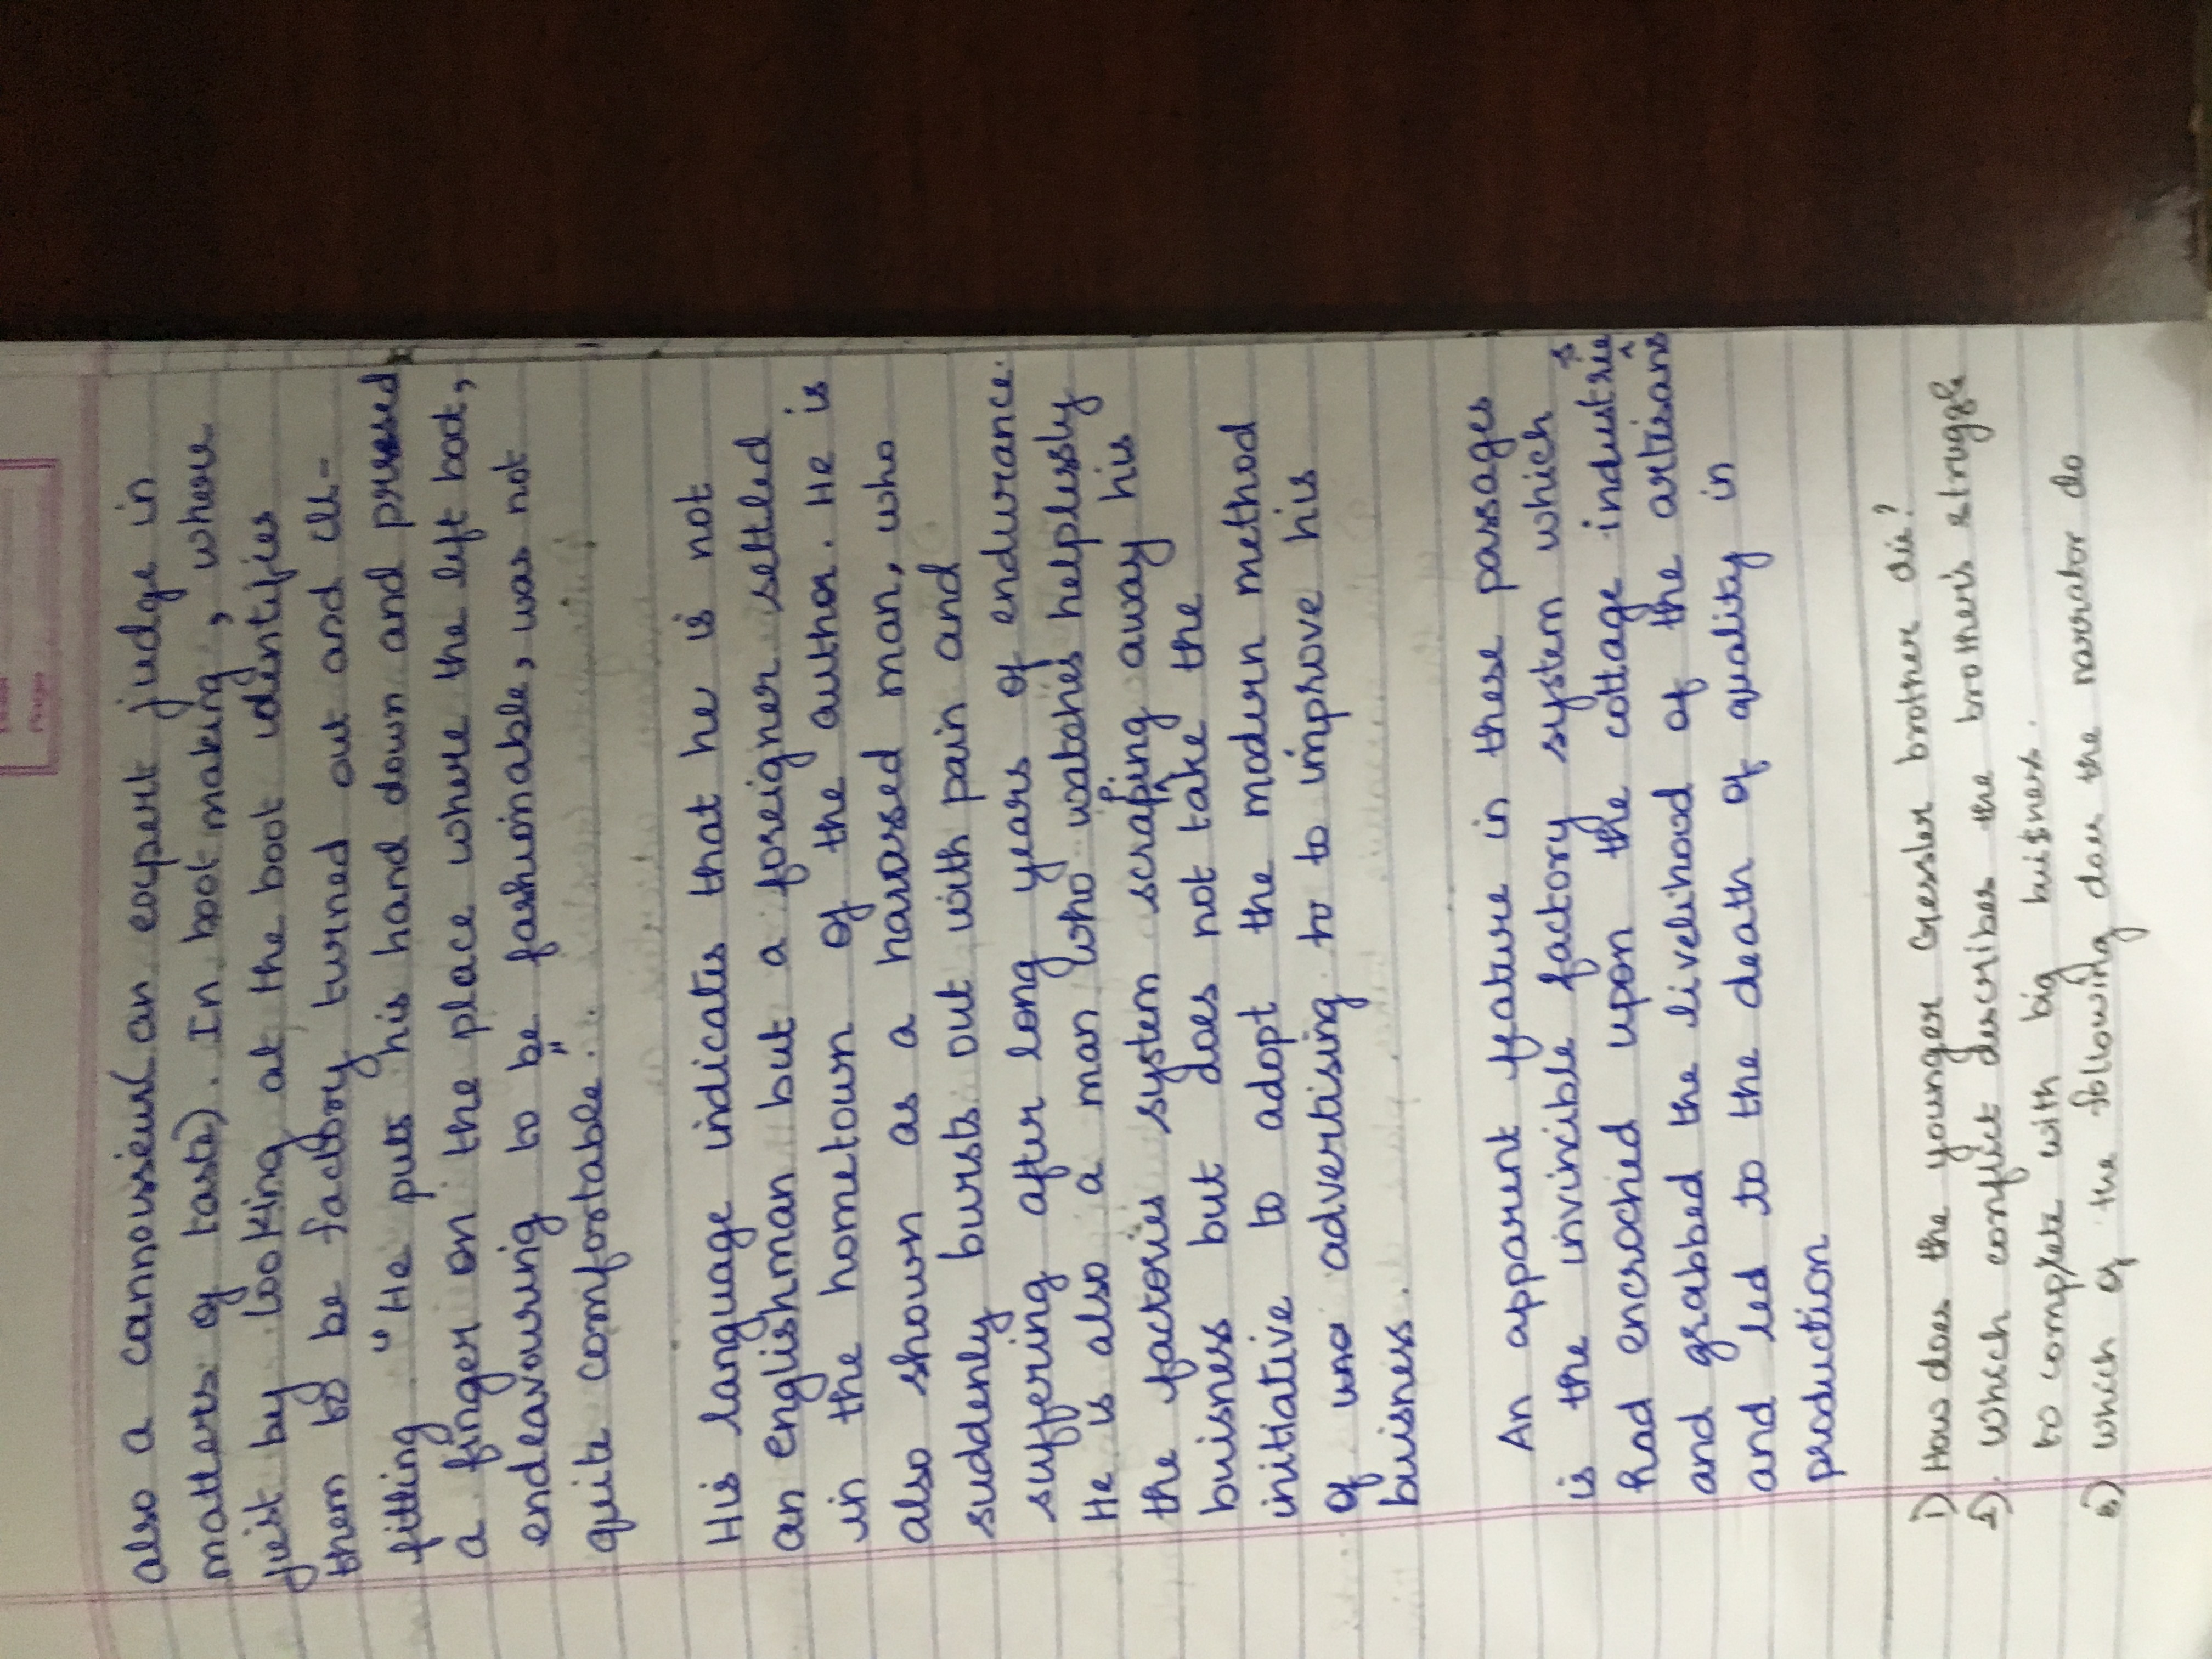 Page
also a cannoisseur(an expert judge in
matters of taste). In boot making, where
just by looking at the boot identifies
them to be factory turned out and ill-
fitting. "He puts his hand down and pressed
a finger on the place where the left boot,
endeavouring to be fashionable, was not
quite comfortable."
His language indicates that he is not
an englishman but a foreigner settled
in the hometown of the author. He is
also shown as a harassed man, who
suddenly bursts out with pain and
suffering after long years of endurance.
He is also a man who watches helplessly
the factories system scraping away his
buisness but does not take the
initiative to adopt the modern method
of advertising to to improve his
buisness.
An apparent feature in these passages
is the invincible factory system which
had encroched upon the cottage industries
and grabbed the livelihood of the artisans
and led to the death of quality in
production
1) How does the younger Gessler brother die?
2). Which conflict describes the brother's struggle
to complete with big buisness.
3) Which of the following does the narrator do